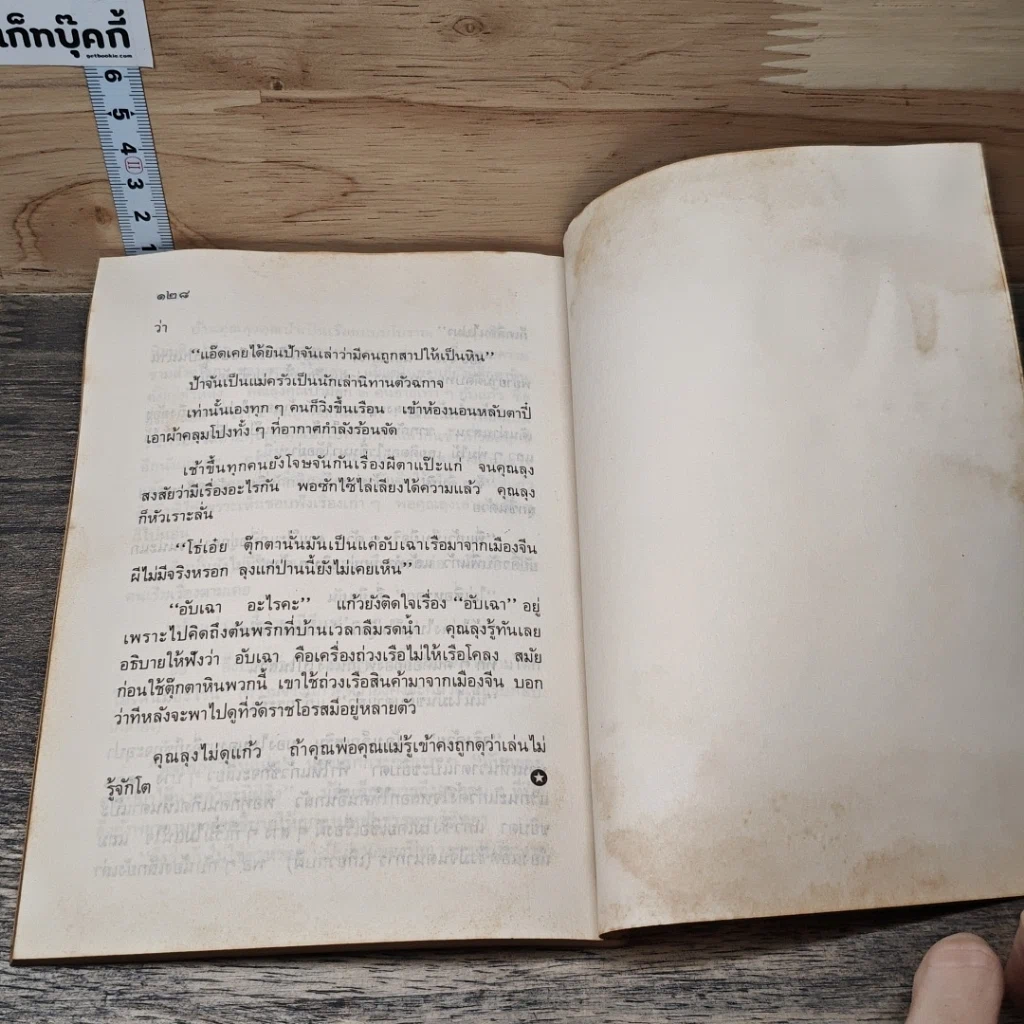 เก็ทบุ๊คกี้
getbookie.com
6
5
4
3
2
1
๑๒๘
ว่า
“แอ๊ดเคยได้ยินป้าจันเล่าว่ามีคนถูกสาปให้เป็นหิน”
ป้าจันเป็นแม่ครัวเป็นนักเล่านิทานตัวฉกาจ
เท่านั้นเองทุก ๆ คนก็วิ่งขึ้นเรือน เข้าห้องนอนหลับตาปี๋
เอาผ้าคลุมโปงทั้ง ๆ ที่อากาศกำลังร้อนจัด
เช้าขึ้นทุกคนยังโจษจันกันเรื่องผีตาแป๊ะแก่ จนคุณลุง
สงสัยว่ามีเรื่องอะไรกัน พอซักไซ้ไล่เลียงได้ความแล้ว คุณลุง
ก็หัวเราะลั่น
“โธ่เอ๋ย ตุ๊กตานั้นมันเป็นแค่อับเฉาเรือมาจากเมืองจีน
ผีไม่มีจริงหรอก ลุงแก่ป่านนี้ยังไม่เคยเห็น”
“อับเฉา อะไรคะ” แก้วยังติดใจเรื่อง “อับเฉา” อยู่
เพราะไปคิดถึงต้นพริกที่บ้านเวลาลืมรดน้ำ คุณลุงรู้ทันเลย
อธิบายให้ฟังว่า อับเฉา คือเครื่องถ่วงเรือไม่ให้เรือโคลง สมัย
ก่อนใช้ตุ๊กตาหินพวกนี้ เขาใช้ถ่วงเรือสินค้ามาจากเมืองจีน บอก
ว่าทีหลังจะพาไปดูที่วัดราชโอรสมีอยู่หลายตัว
คุณลุงไม่ดุแก้ว ถ้าคุณพ่อคุณแม่รู้เข้าคงถูกดุว่าเล่นไม่
รู้จักโต